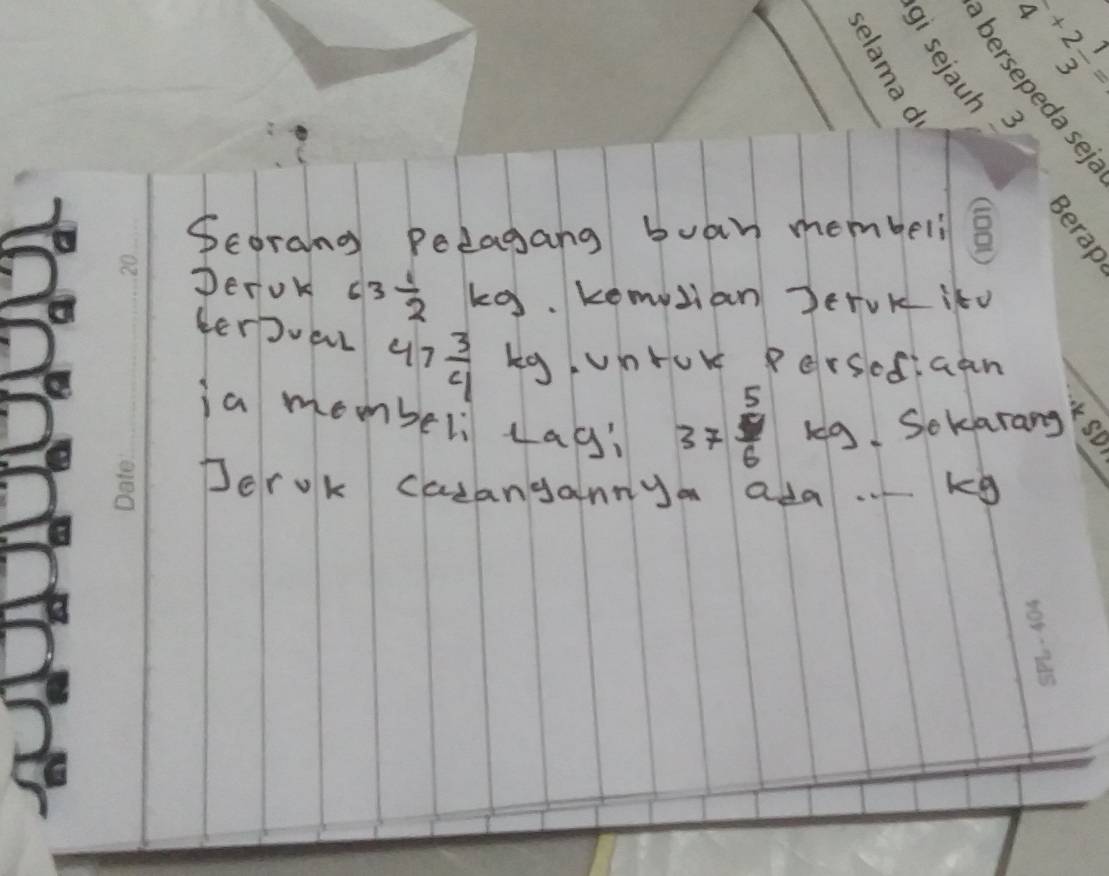 Seorang Pedagang buah membeli
Jeruk 63 1/2 kg. kemudian Jeruk itu
terJual 47 3/4 kg. untuk Persediaan
ia membeli Lagi 37 5/6 kg. Sekarang
Jeruk cadangannya ada ... kg
Date: 20
1001
SPL-404
selama
gi sejauh 3
a bersepeda sejau
4 + 2 1/3 =
Berapa